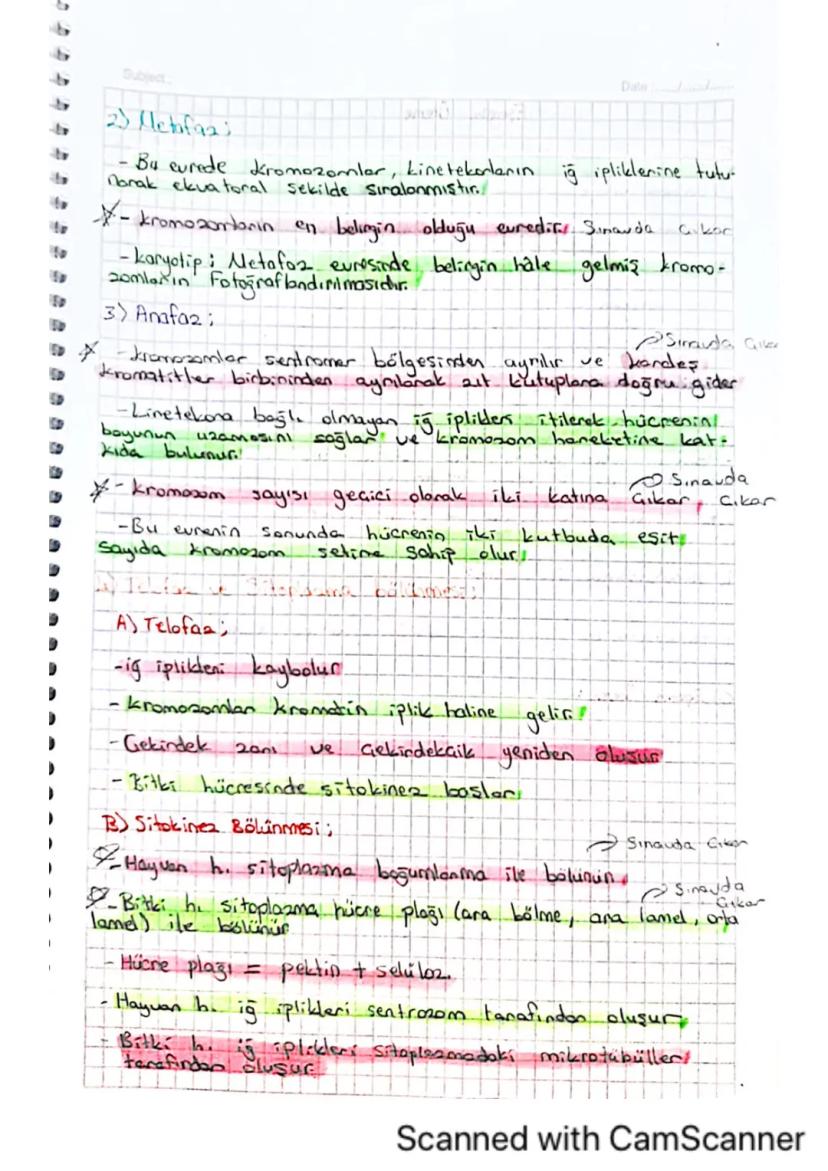 Subject:
Date
2) Metafaz;
- Bu evrede kromozomlar, kinetekorlarının iğ ipliklerine tutu-
narak ekvatoral şekilde sıralanmıştır.
- kromozomların en belirgin olduğu evredir. Sınavda Çıkar
- karyotip; Metafaz evresinde belirgin hâle gelmiş kromo-
zomların Fotoğraflandırılmasıdır.
3) Anafaz;
Sınavda Çıkar
- kromozomlar sentromer bölgesinden ayrılır ve kardeş
kromatitler birbirinden ayrılarak zıt kutuplara doğru gider
- Kinetekora bağlı olmayan iğ iplikleri itilerek hücrenin
boyunun uzamasını sağlar ve kromozom hareketine kat-
kıda bulunur.
Sınavda
- kromozom sayısı geçici olarak iki katına çıkar, Çıkar
- Bu evrenin sonunda hücrenin iki kutbuda eşit
sayıda kromozom setine sahip olur.
4) Telofaz ve Sitoplazma bölünmesi;
A) Telofaz;
- iğ iplikleri kaybolur
- kromozomlar kromatin iplik haline gelir.
- Çekirdek zarı ve çekirdekcik yeniden oluşur
- Bitki hücresinde sitokinez başlar
B) Sitokinez Bölünmesi;
Sınavda Çıkar
- Hayvan h. sitoplazma boğumlanma ile bölünür.
Sınavda
Çıkar
- Bitki h. sitoplazma hücre plağı (ara bölme, ara lamel, orta
lamel) ile bölünür
- Hücre plağı = pektin + selüloz.
- Hayvan h. iğ iplikleri sentrozom tarafından oluşur
- Bitki h. iğ iplikleri sitoplazmadaki mikrotübüller
tarafından oluşur.
Scanned with CamScanner